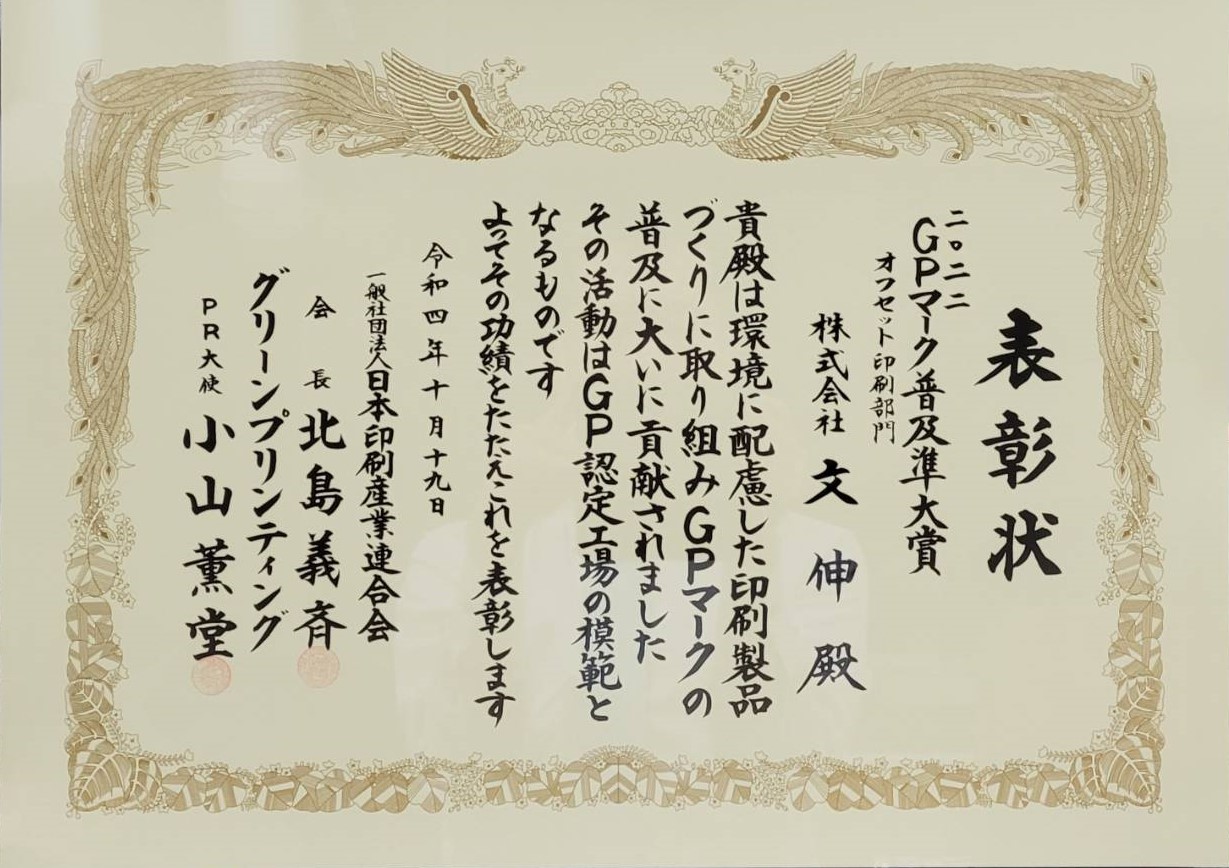 表彰状
二〇二二
GPマーク普及準大賞
オフセット印刷部門
株式会社 文伸殿
貴殿は環境に配慮した印刷製品
づくりに取り組みGPマークの
普及に大いに貢献されました
その活動はGP認定工場の模範と
なるものです
よってその功績をたたえこれを表彰します
令和四年十月十九日
一般社団法人日本印刷産業連合会
会長 北島義斉
グリーンプリンティング
PR大使 小山薫堂